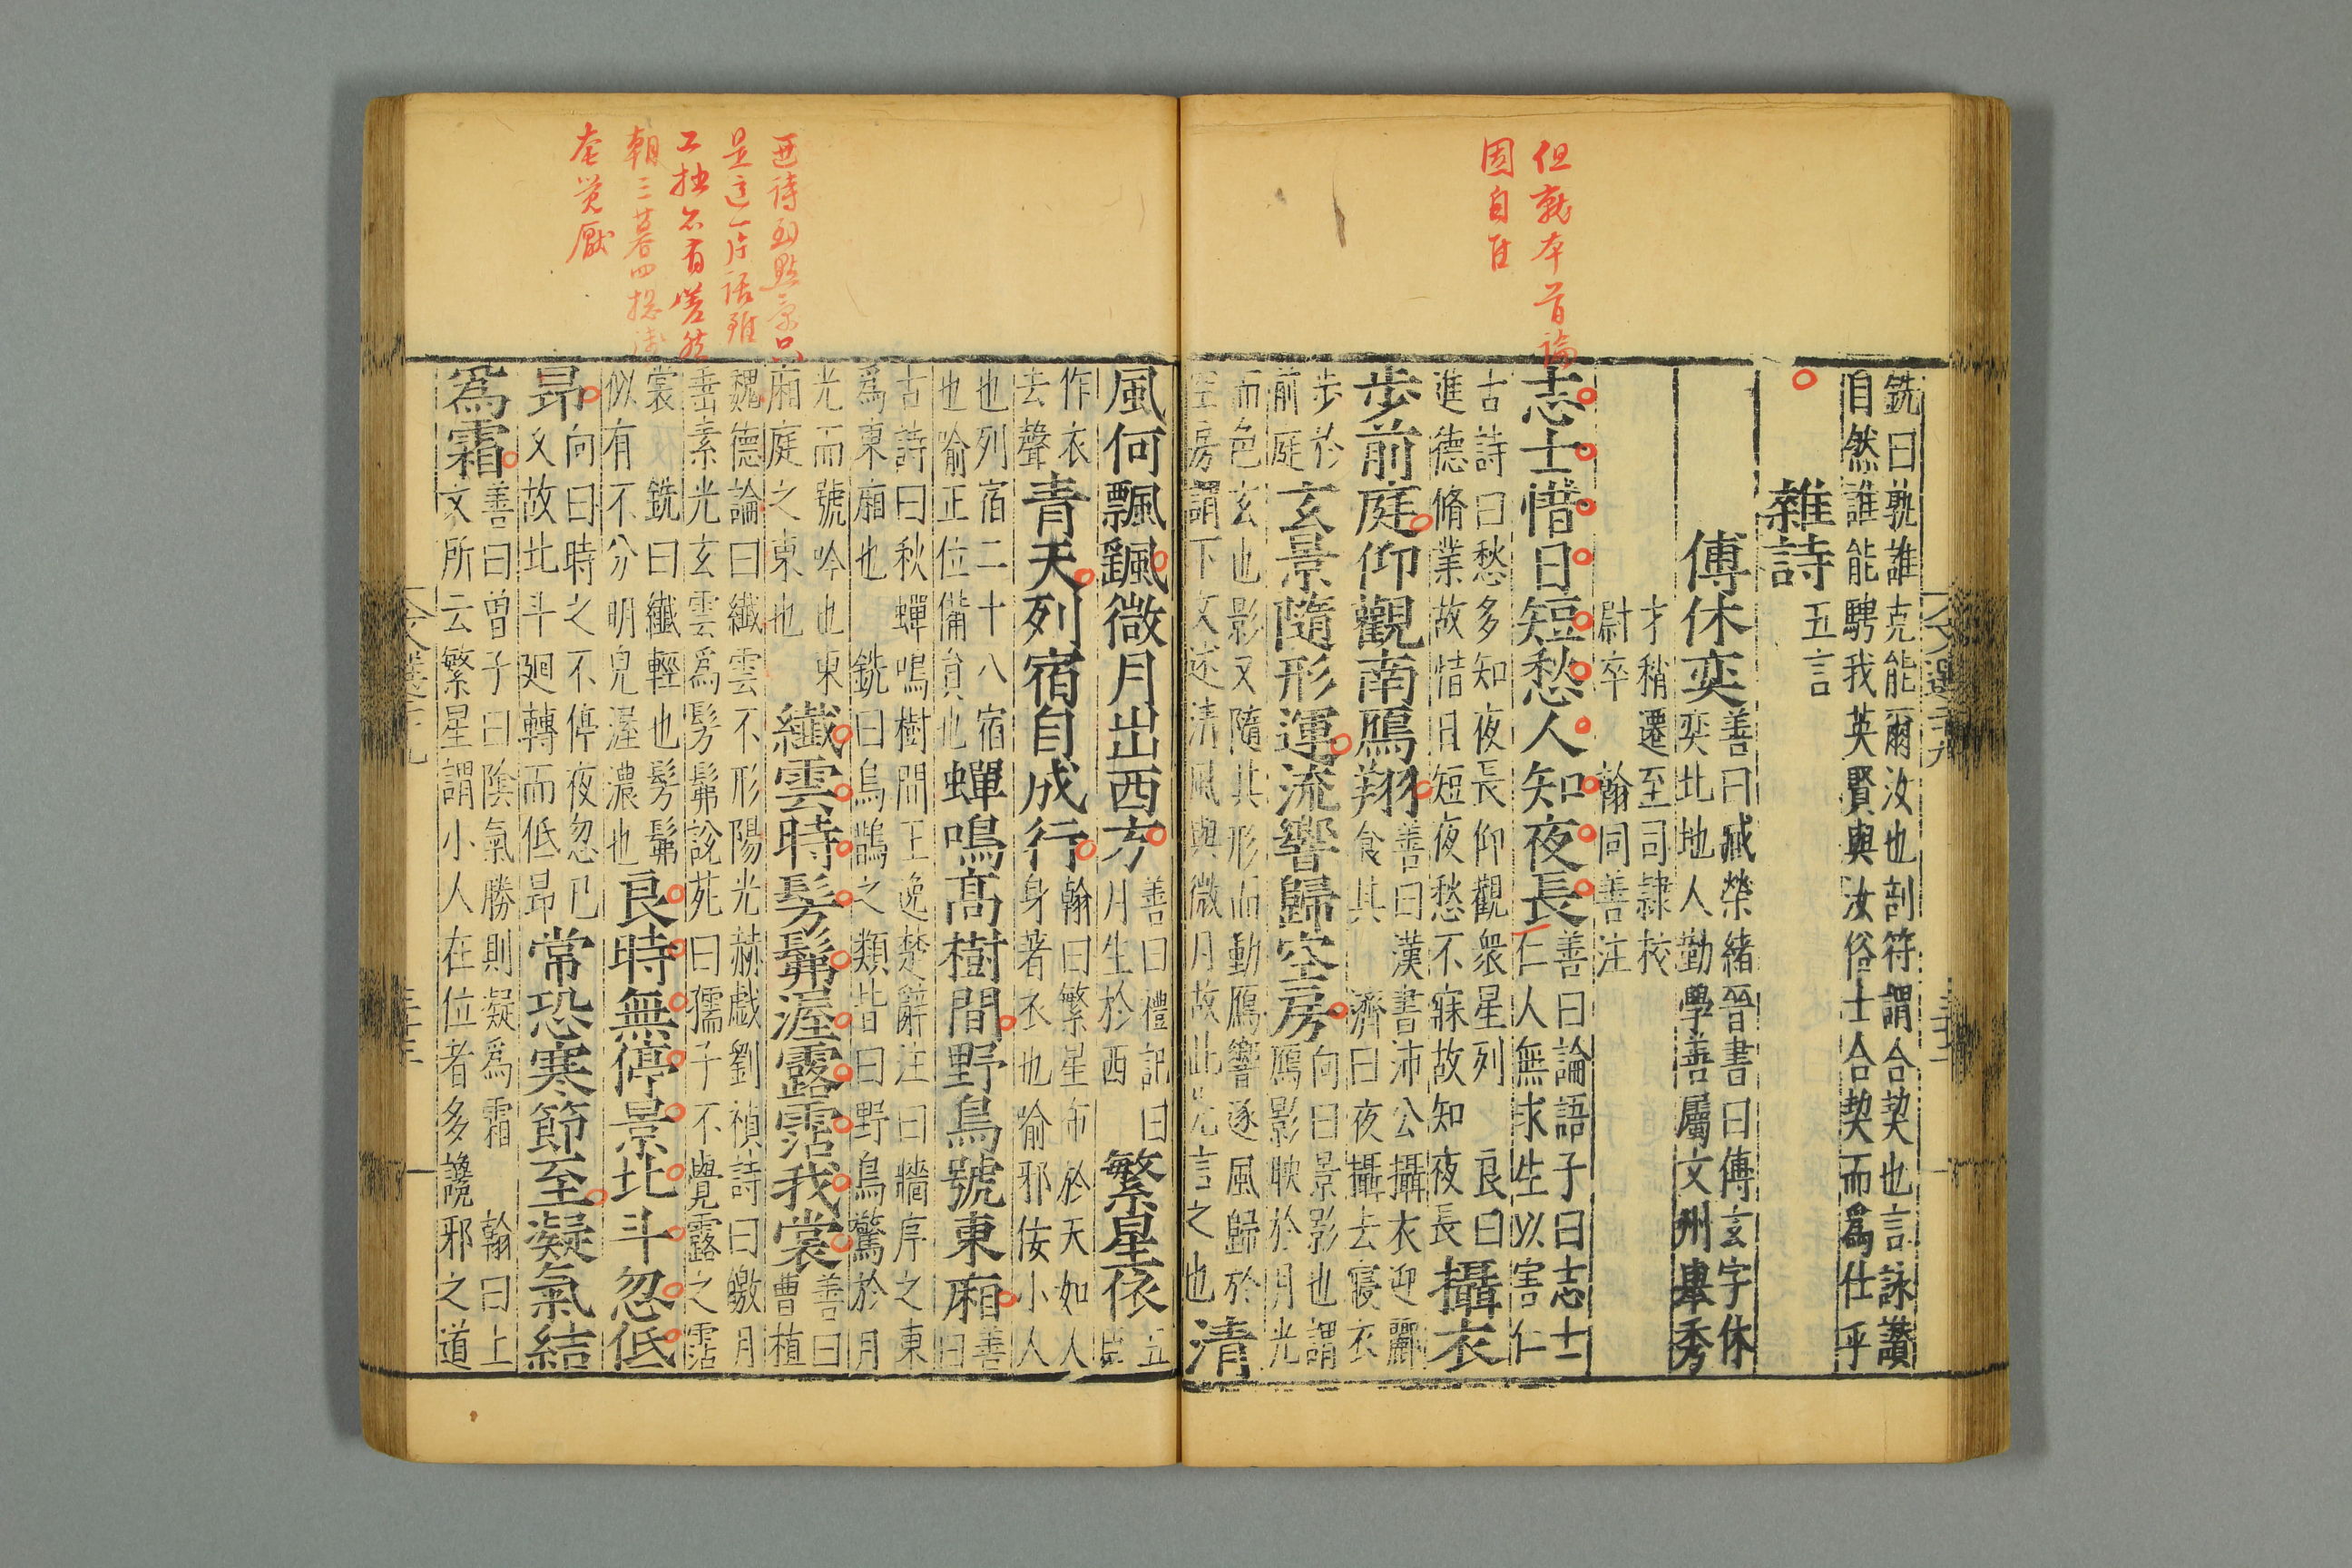 但就本首論
固自佳
銑曰孰誰克能爾汝也剖符謂合契也言詠讚
自然誰能騁我英賢與汝俗士合契而爲仕乎
雜詩五言
傅休奕
善曰臧榮緒晉書曰傅玄字休
奕北地人勤學善屬文州舉秀
才稍遷至司隸校
尉卒
翰同善注
志士惜日短愁人知夜長
善曰論語子曰志士
仁人無求生以害仁
古詩曰愁多知夜長仰觀衆星列
良曰
進德脩業故惜日短夜愁不寐故知夜長
攝衣
步前庭仰觀南鴈翔
善曰漢書沛公攝衣迎酈
食其
濟曰夜攝去寢衣
步於
前庭
玄景隨形運流響歸空房
向曰景影也謂
鴈影映於月光
而色玄也影又隨其形而動鴈響逐風歸於
空房謂下文述清風與微月故此先言之也
清
風何飄颻微月出西方
善曰禮記曰
月生於西
繁星依
五臣
作衣
去聲
青天列宿自成行
翰曰繁星布於天如人
身著衣也喻邪佞小人
也列宿二十八宿
也喻正位備貟也
蟬鳴髙樹間野鳥號東廂
善曰
古詩曰秋蟬鳴樹間王逸楚辭注曰牆序之東
爲東廂也
銑曰烏鵲之類皆曰野鳥驚於月
光而號吟也東
廂庭之東也
纖雲時髣髴渥露霑我裳
善曰曹植
魏德論曰纖雲不形陽光赫戲劉禎詩曰皦月
垂素光玄雲爲髣髴說苑曰孺子不覺露之霑
裳
銑曰纖輕也髣髴
似有不分明皃渥濃也
良時無停景北斗忽低
昂
向曰時之不停夜忽已
又故北斗廻轉而低昂
常恐寒節至凝氣結
爲霜
善曰曾子曰陰氣勝則凝爲霜
翰曰上
文所云繁星謂小人在位者多讒邪之道
是這一片話雖
工拙不有
朝三暮四